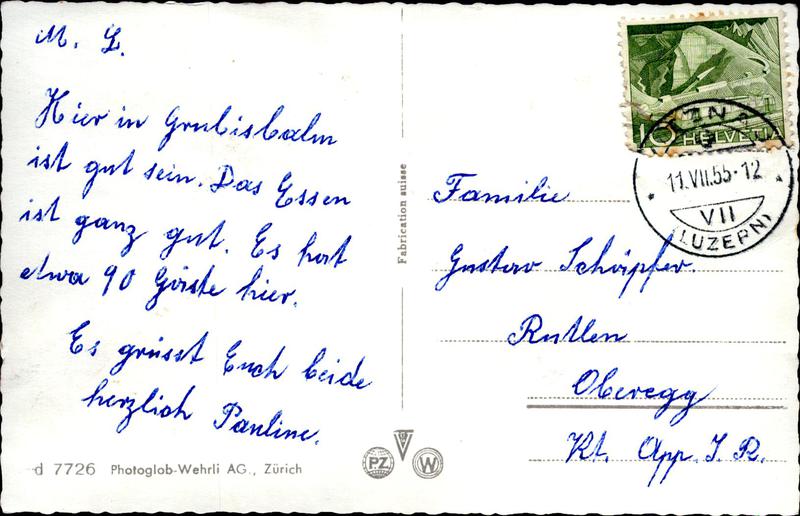 M. L.
Hier in Grubisbalm
ist gut sein. Das Essen
ist ganz gut. Es hat
etwa 90 Gäste hier.
Es grüsst Euch beide
herzlich Pauline.
d 7726 Photoglob-Wehrli AG., Zürich
Fabrication suisse
PZ
W
10 HELVETIA
11.VII.55-12
VII
(LUZERN)
Familie
Gustav Schöpfer.
Rutlen
Oberegg
Kt. App. I. R.